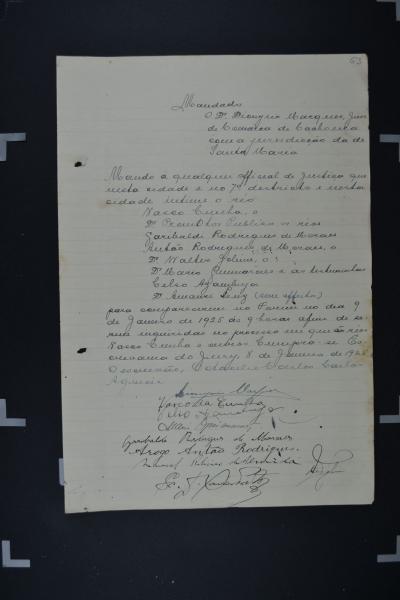 63
Mandado
O Dr. Dionysio Marques, Juiz
de Comarca de Cachoeira
com a jurisdicção da de
Santa Maria
Mando a qualquer official de justiça que
nesta cidade e no 7º districto e nesta
cidade intime o réo
Vasco Cunha, o
Dr. Promotor Publico os réos
Garibaldi Rodrigues de Moraes
Antão Rodrigues de Moraes, o
Dr. Walter
Dr. Mario Guimarães e as testemunhas
Celso Azambuja
Dr. Amaury Lenz (sem effeito)
para comparecerem no Forum no dia 9
de Janeiro de 1925 ás 9 horas afim de se
rem inquiridas no processo em que são réos
Vasco Cunha e outros Cumpra-se
do Jury, 8 de Janeiro de 1925
O escrivão,
Vasco da Cunha
Garibaldi Rodrigues de Moraes
Arogo Antão Rodrigues.